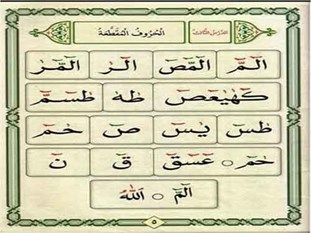 الدرس الثالث الحروف المقطعة
الٓمّٓ الٓمّٓصٓ الٓرٰ الٓمّٓرٰ
كٓهٰيٰعٓصٓ طٰهٰ طٰسٓمّٓ
طٰسٓ يٰسٓ صٓ حٰمٓ
حٰمٓ ○ عٓسٓقٓ قٓ نٓ
الٓمّٓ ○ اللّٰهُ
٥